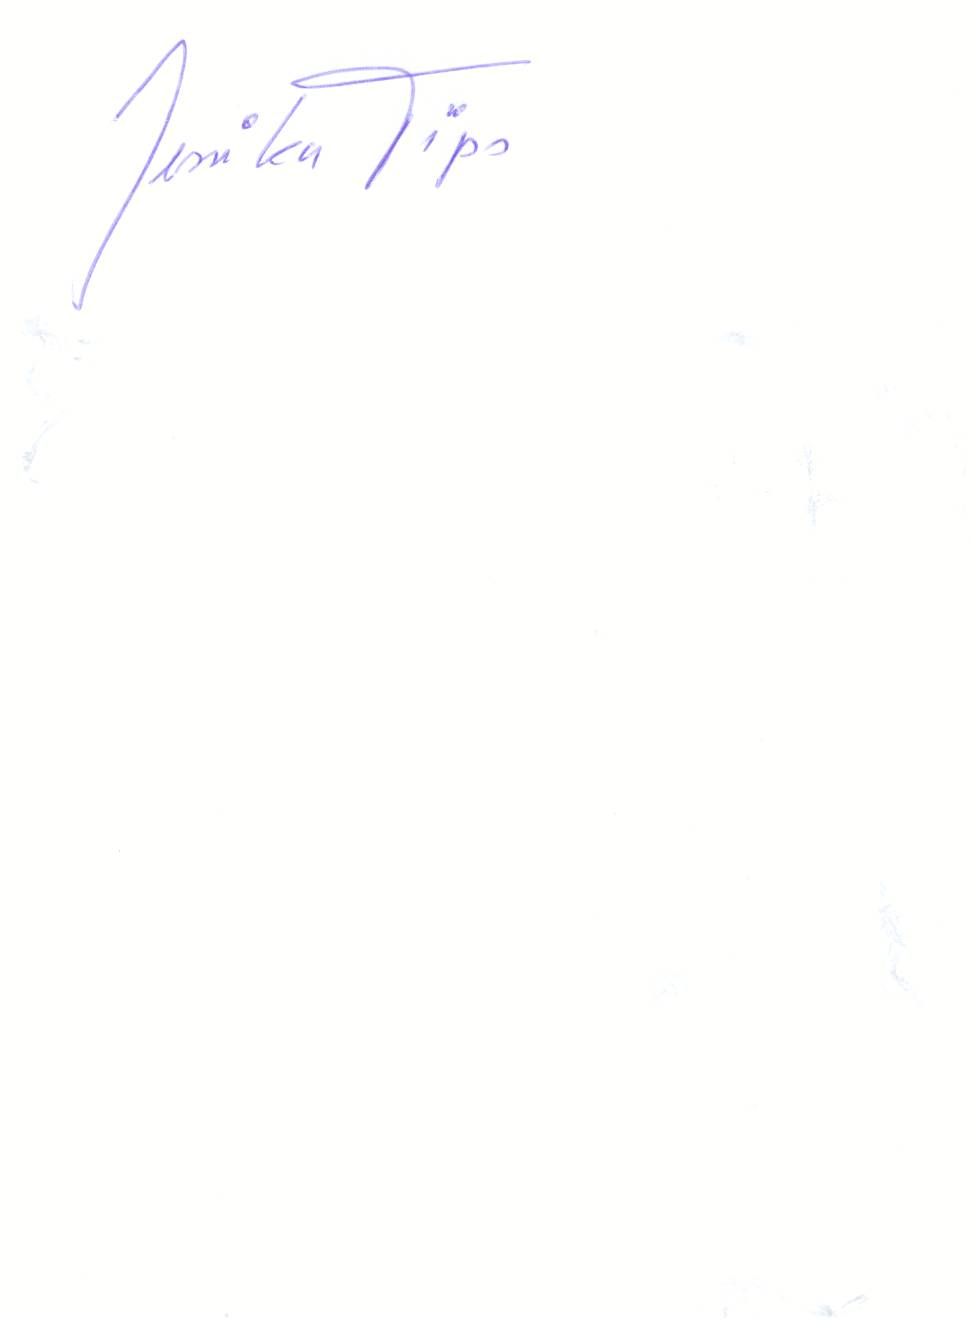 Jessika Tips